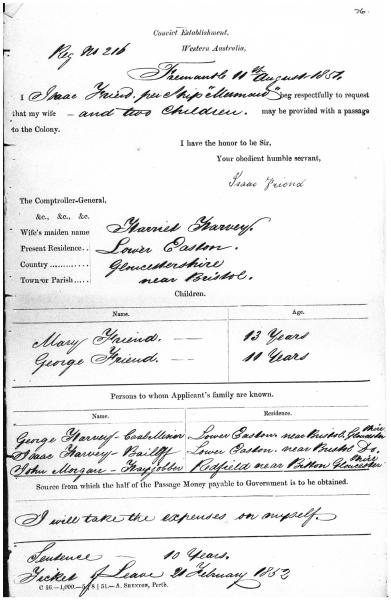 76.
Convict Establishment,
Reg No 216
Western Australia,
Fremantle 11th August 185
I Isaac Friend. per Ship "Mermaid" beg respectfully to request
that my wife - and two Children. may be provided with a passage
to the Colony.
I have the honor to be Sir,
Your obedient humble servant,
Isaac Friend
The Comptroller-General,
&c., &c., &c.
Wife's maiden name Harriet Harvey.
Present Residence.. Lower Easton.
Country ........... Gloucestershire
Town or Parish ..... near Bristol.
Children.
Name. Age.
Mary Friend. — 13 Years
George Friend. — 11 Years
Persons to whom Applicant's family are known.
Name. Residence.
George Harvey - Coal Minor Lower Easton. near Bristol. Gloucester shire
Isaac Harvey - Bailiff Lower Easton. near Bristol Do.
John Morgan - Redfield near Bitton Gloucester shire
Source from which the half of the Passage Money payable to Government is to be obtained.
I will take the expenses on myself.
Sentence — 10 Years.
Ticket of Leave 21 February 1852
C 16.—1,000.—5 | 8 | 51.—A. SHENTON, Perth.